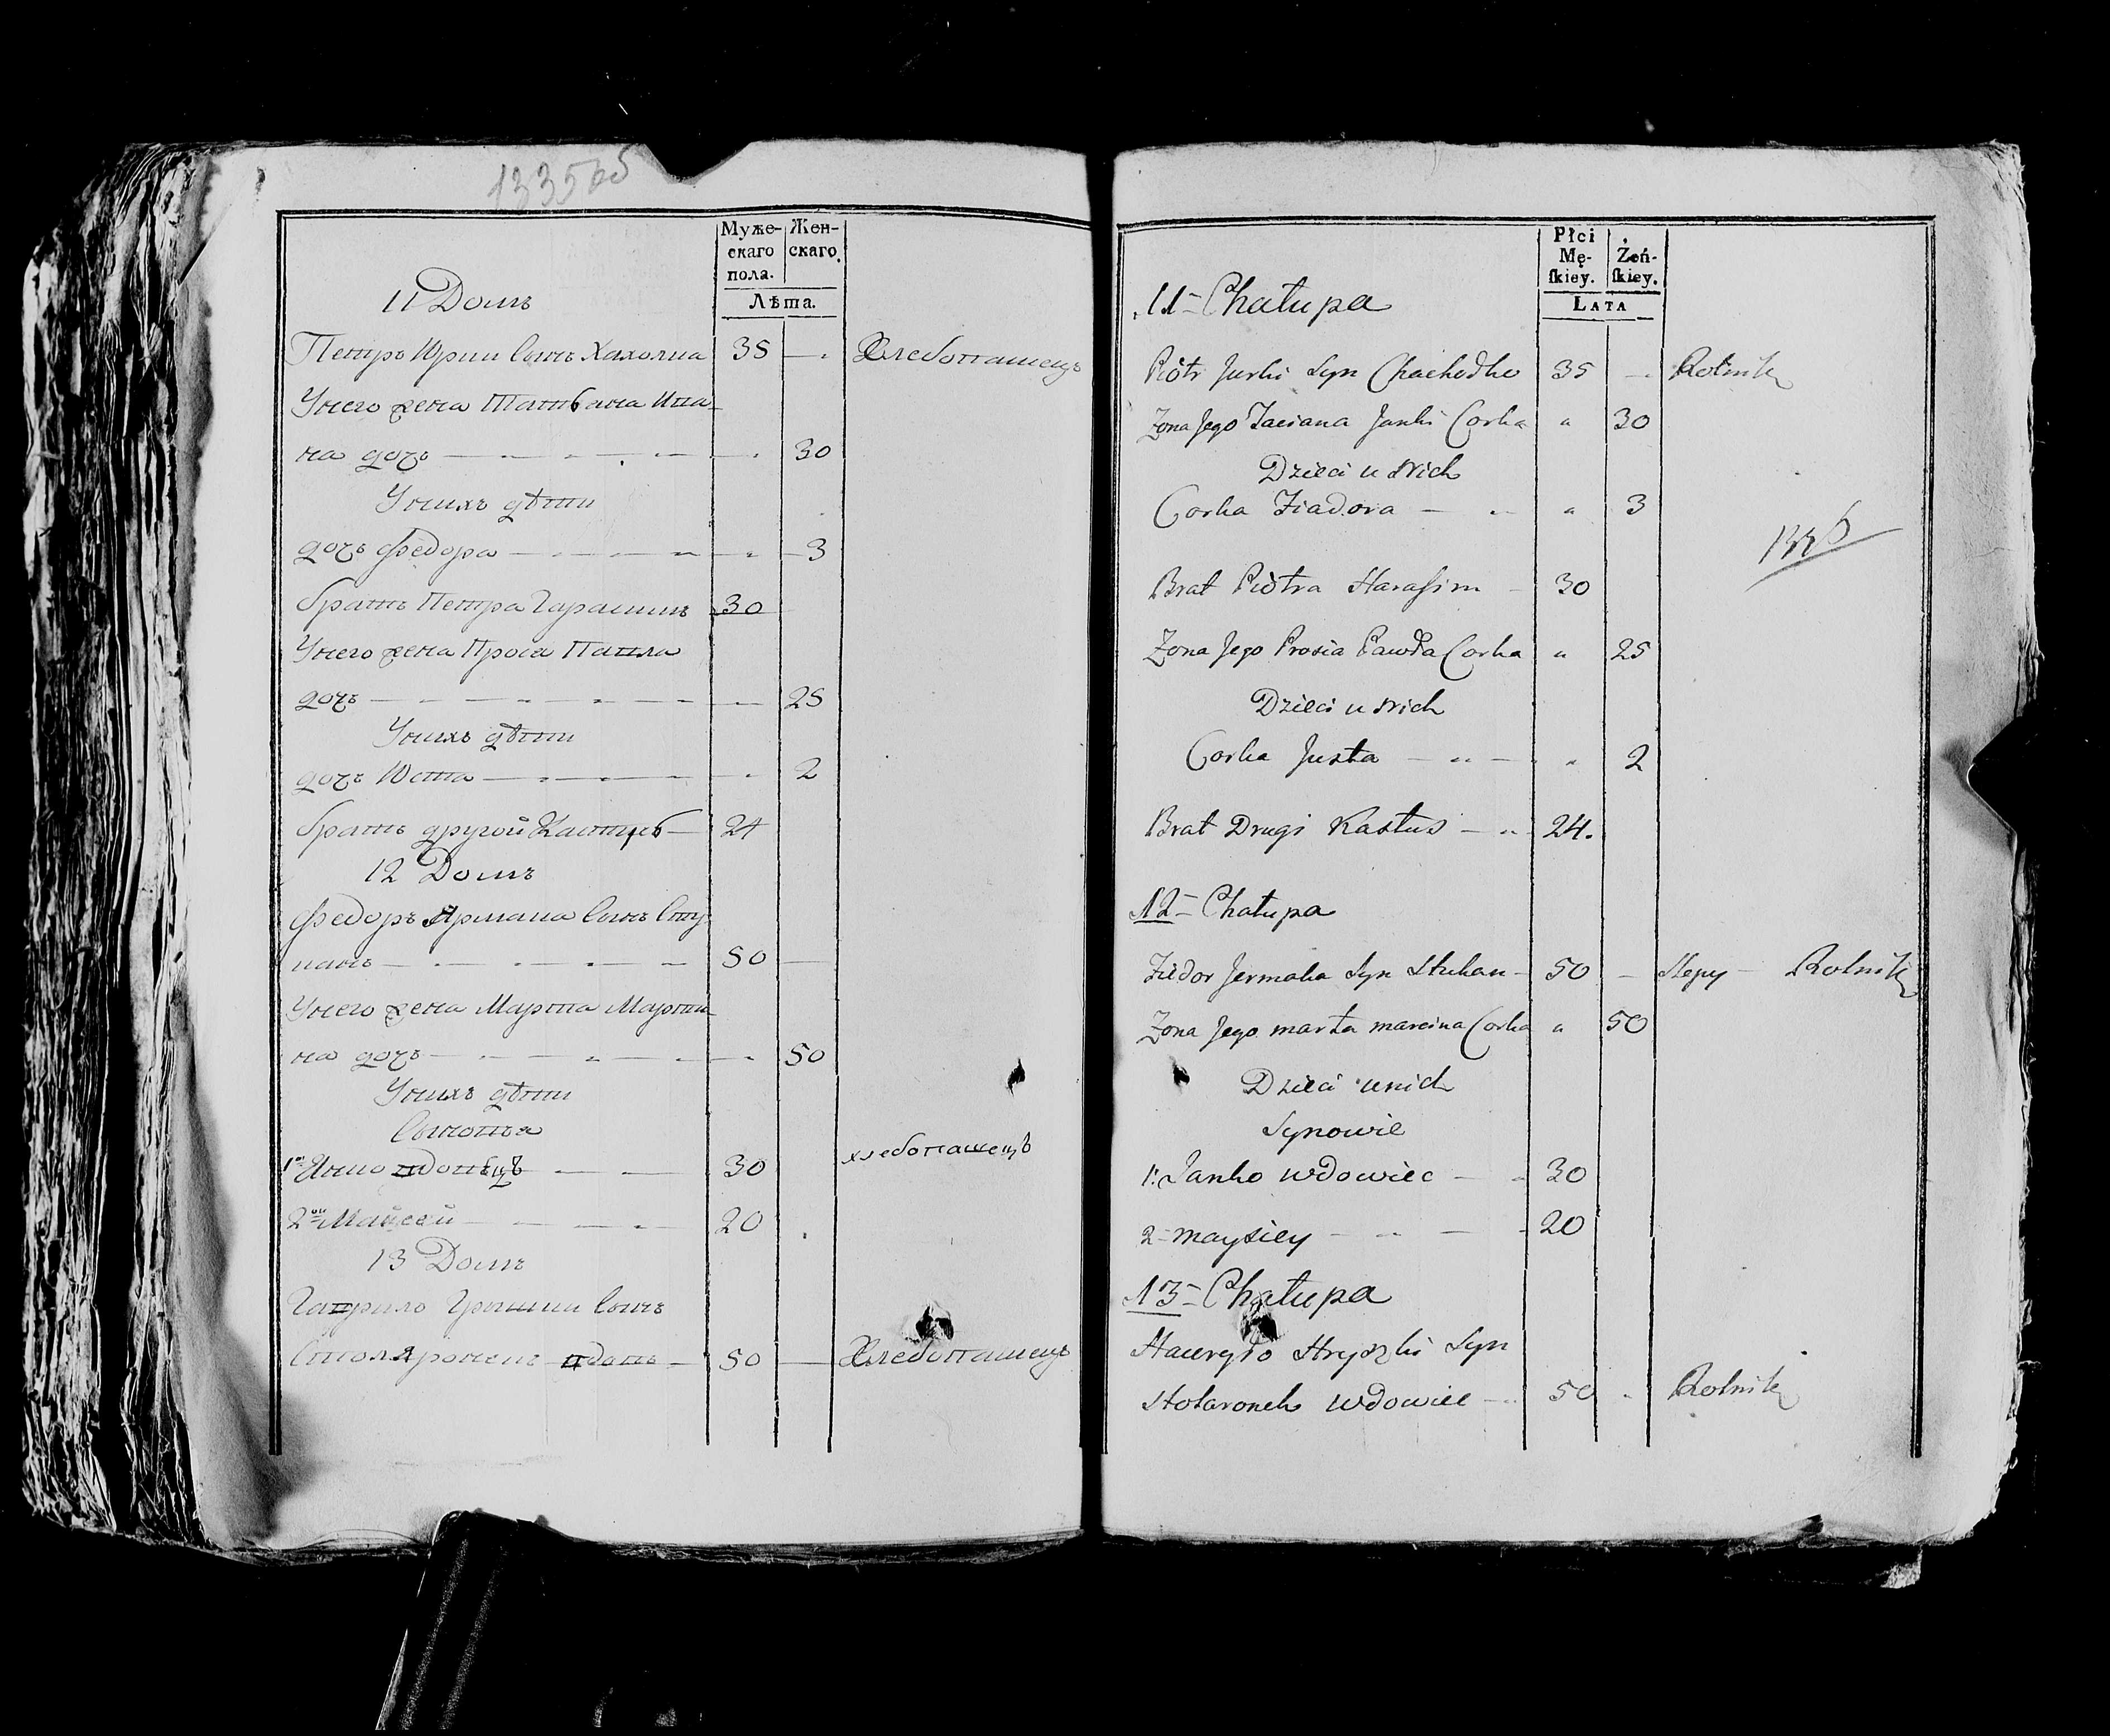 13356б
Муже-
скаго
пола.
Жен-
скаго.
Лѣта.
11 Домъ
Петръ Юрки Сынъ Хахолка 35 — . Хлебопашецъ
Унего жена Татьана Ина-
на дочь — 30
Унихъ дѣти
дочь Федора — 3
братъ Петра Гарасимъ 30
Унего жена Прося Павла
дочь — 25
Унихъ дѣти
дочь Юста — 2
братъ другой Кастусь — 24
12 Домъ
Федоръ Ярмака Сынъ Сту-
канъ — 50 —
Унего жена Марта Марти-
на дочь — 50
Унихъ дѣти
Сыновья
1й Янко вдовецъ — 30 хлебопашецъ
2ой Майсей — 20
13 Домъ
Гаврило Гришки Сынъ
Столяронекъ вдовъ — 50 — Хлебопашецъ
Płci
Mę-
skiey.
Żeń-
skiey.
LATA
11 - Chałupa
Piotr Jurki Syn Chachołko 35 — Rolnik
Zona Jego Taciana Janki Corka " 30
Dzieci u Nich
Corka Fiadora — " 3
Brat Piotra Harasim - 30
Zona Jego Prosia Pawła Corka " 25
Dzieci u Nich
Corka Justa — " 2
Brat Drugi Kastus — 24.
12 - Chałupa
Fiedor Jermaka Syn Stukan - 50 — Slepy — Rolnik
Zona Jego marta marcina Corka " 50
Dzieci unich
Synowie
1: Janko wdowiec — 30
2 - maysiey — 20
13 - Chałupa
Hawryło Hryszki Syn
Stolaronek wdowiec — 50 - Rolnik